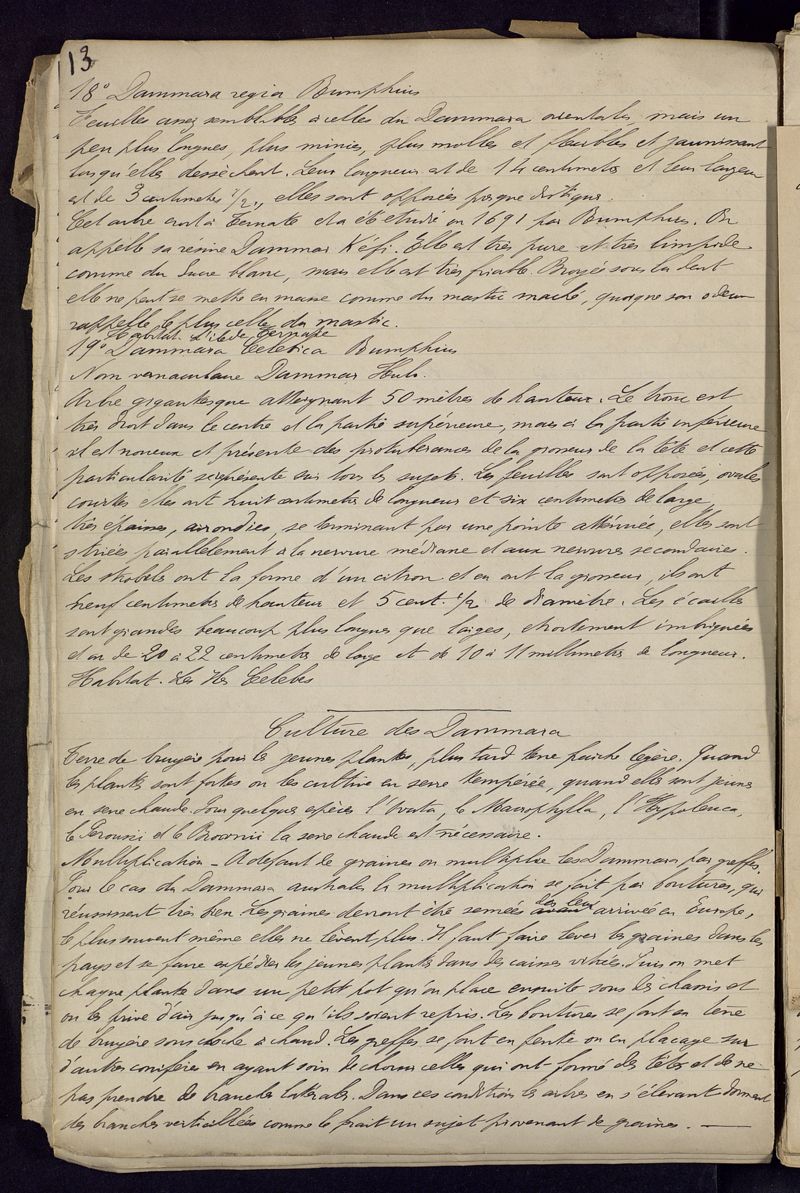 13
18° Dammara regia Bumphius
Feuilles assez semblables à celles du Dammara orientalis, mais un
peu plus longues, plus minces, plus molles et flexibles et jaunissant
lorsqu'elles dessèchent. Leur longueur est de 14 centimetres et leur largeur
est de 3 centimetres 1/2, elles sont opposées presque
Cet arbre croit à Ternate et a été étudié en 1691 par Bumphius. On
appelle sa résine Dammar Kéfi. Elle est très pure et très limpide
comme du sucre blanc, mais elle est très friable. Broyée sous la dent
elle ne peut se mettre en masse comme du mastic maché, quoique son odeur
rappelle le plus celle du mastic.
Habitat. L'ile de Ternate
19° Dammara Celebica Bumphius
Nom vernaculaire Dammar
Arbre gigantesque atteignant 50 mètres de hauteur. Le tronc est
très droit dans le centre et la partie supérieure, mais à la partie inférieure
il est noueux et présente des protubérances de la grosseur de la tête et cette
particularité se présente sur tous les sujets. Les feuilles sont opposées, ovales
courtes elles ont huit centimetres de longueur et six centimetres de large,
très épaisses, arrondies, se terminant par une pointe atténuée, elles sont
striées parallelement à la nervure médiane et aux nervures secondaires.
Les strobiles ont la forme d'un citron et en ont la grosseur, ils ont
neuf centimetres de hauteur et 5 cent. 1/2 de diamètre. Les écailles
sont grandes beaucoup plus longues que larges, etroitement imbriquées
et on de 20 à 22 centimetres de large et de 10 à 11 millimetres de longueur.
Habitat. Les Iles Celebes
Culture des Dammara
Terre de bruyère pour les jeunes plantes, plus tard terre fraiche légère. Quand
les plantes sont fortes on les cultive en serre tempérée, quand elles sont jeunes
en serre chaude. Pour quelques espèces l'Ovata, le Macrophylla, l'Hypoleuca,
le Perousii et le Brownii la serre chaude est nécessaire.
Multiplication – A defaut de graines on multiplie les Dammara par greffes.
Pour le cas du Dammara australis la multiplication se fait par boutures, qui
réussissent très bien. Les graines devront être semées dès leur arrivée en Europe,
le plus souvent même elles ne lèvent plus. Il faut faire lever les graines dans les
pays et se faire expédier les jeunes plantes dans des caisses vitrées. Puis on met
chaque plante dans un petit pot qu'on place ensuite sous les chassis et
on les prive d'air jusqu'à ce qu'ils soient repris. Les boutures se font en terre
de bruyère sous cloche à chaud. Les greffes se font en fente ou en placage sur
d'autres conifères en ayant soin de choisir celles qui ont formé des têtes et de ne
pas prendre de branches laterales. Dans ces conditions les arbres en s'élevant donnent
des branches verticillées comme le fait un sujet provenant de graines. —